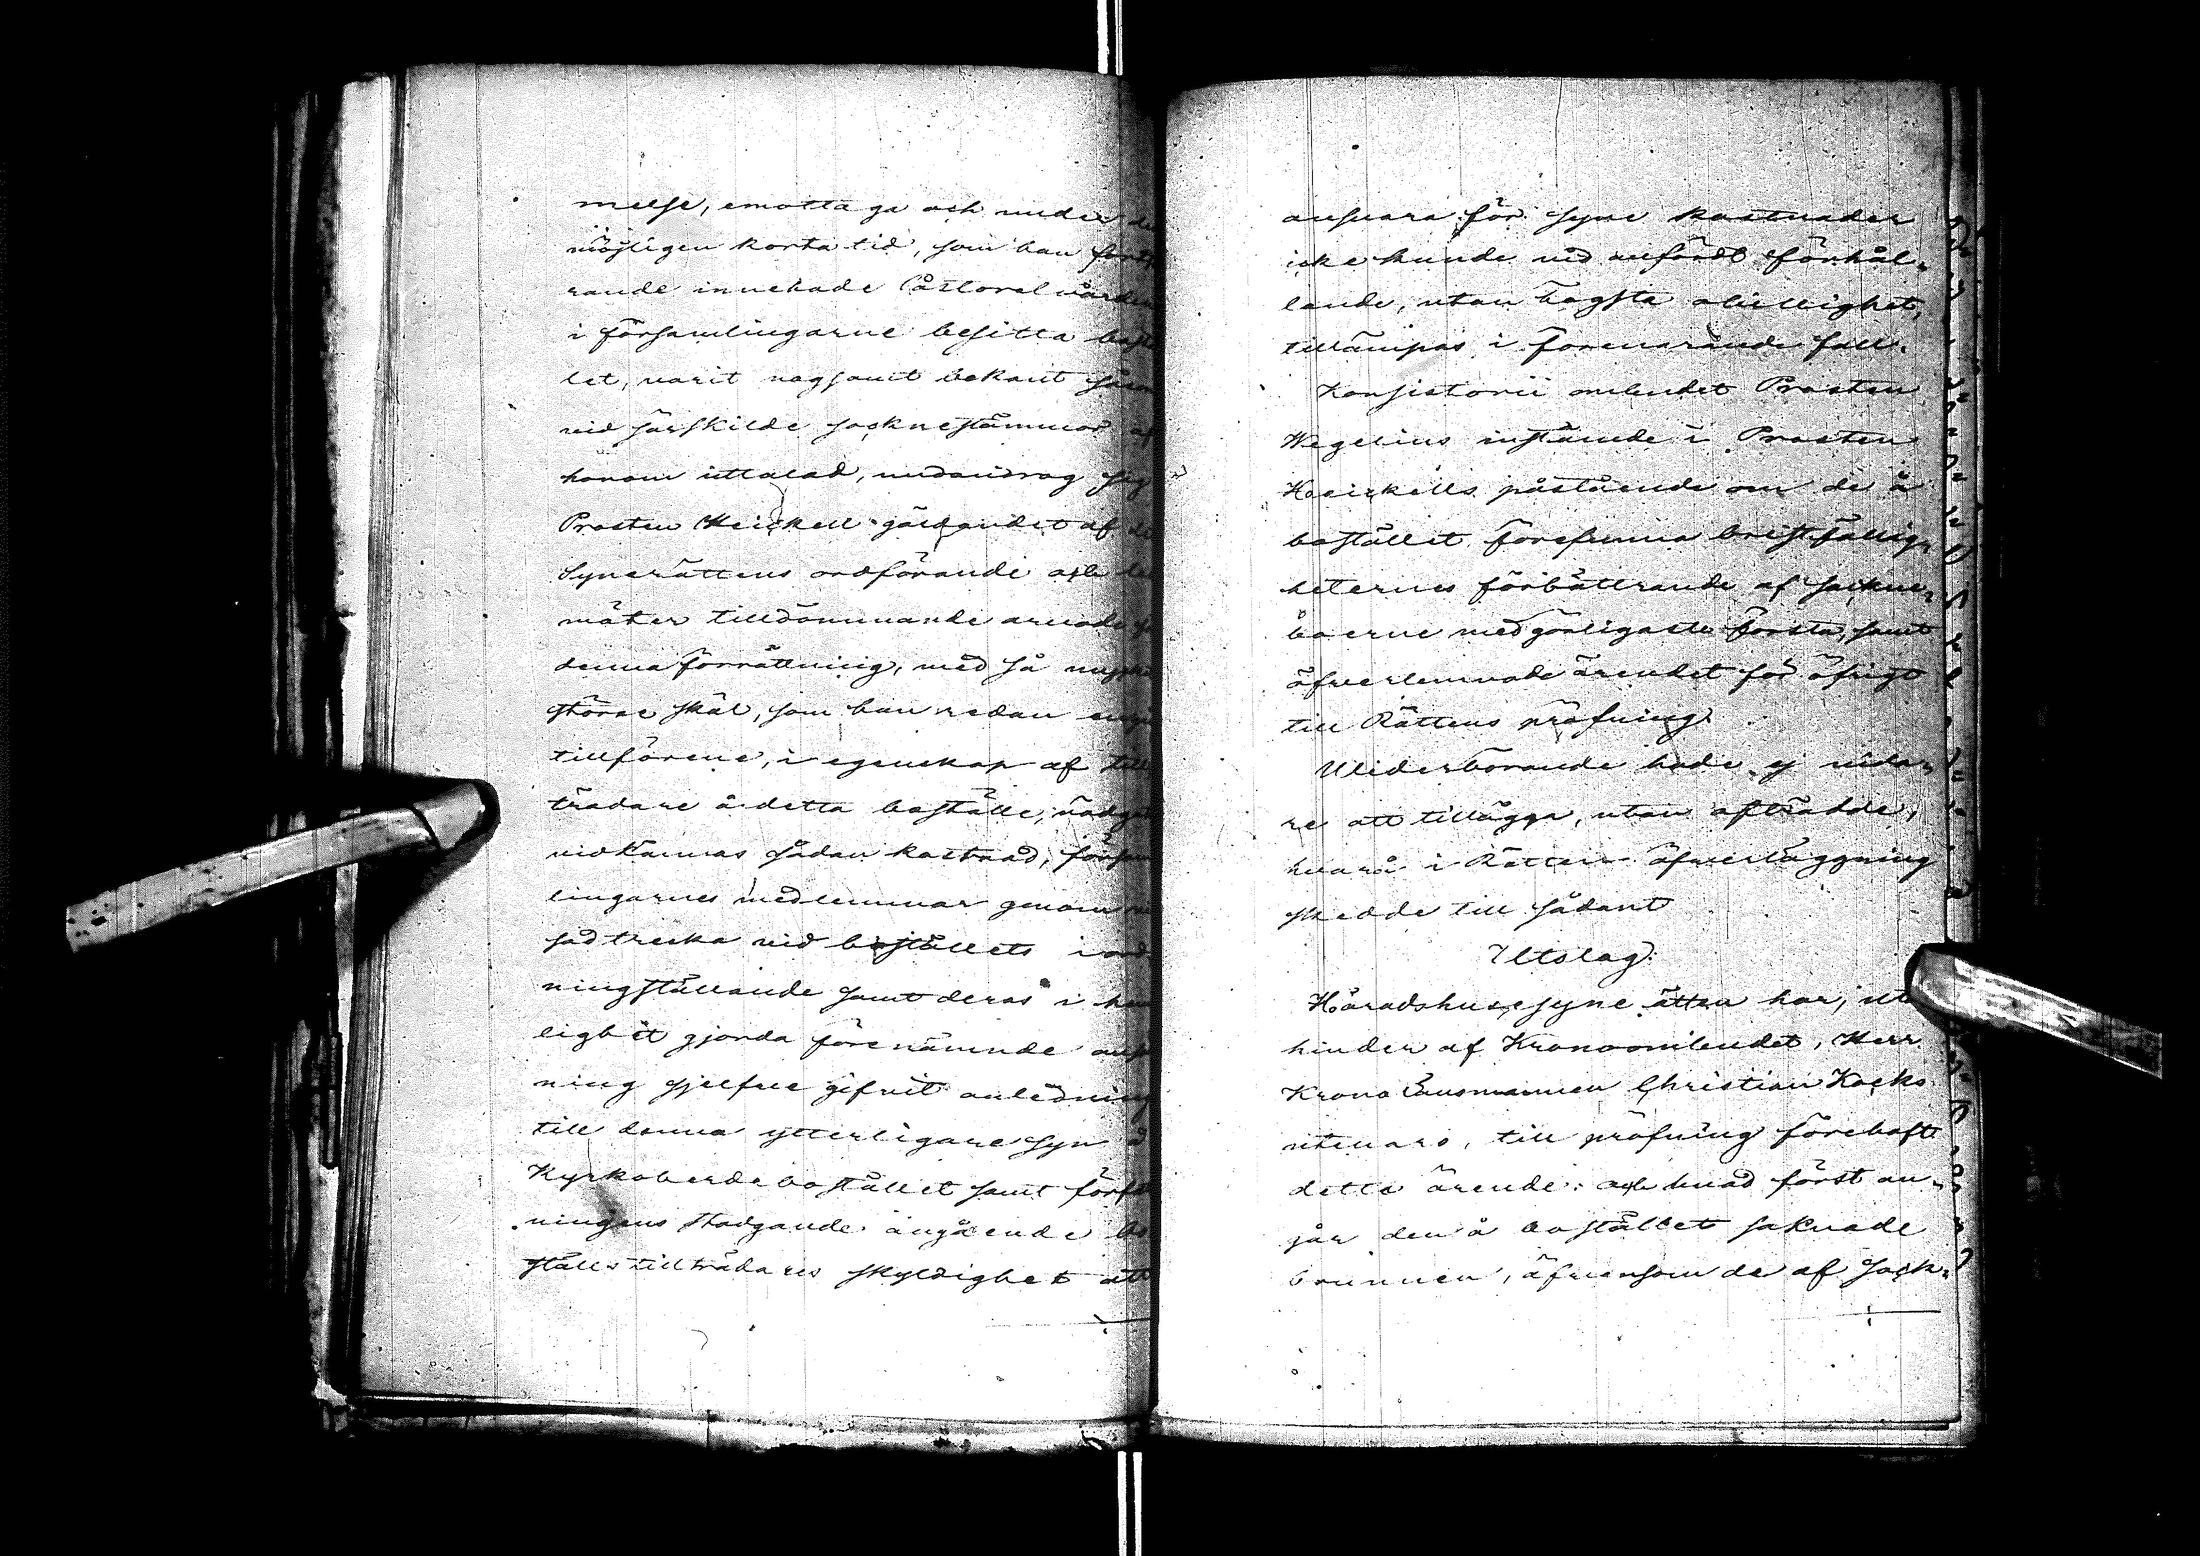 melse, emottaga och under de
möjligen korta tid, som han fort
rande innehade Pastoralvården
i församlingarne besitta bostäl
let, varit nogsamt bekant såsom
vid särskilde socknestämmor af
honom uttalad, undandrog sig
Prosten Heickell gäldandet af de
Synerättens ordförande och le
möter tilldömmande arvode för
denna förrättning, med så mycket
större skäl, som han redan engång
tillförene, i egenskap af till
trädare å detta boställe, nödgats
vidkännas sådan kostnad, försam
lingarnes medlemmar genom vi
sad tredska vid boställets iord
ningställande samt deras i hem
lighet gjorda förenämnde anhå
ning sjelfve gifvit anledning
till denna ytterligare syn å
Kyrkoherdebostället samt förfat
ningens stadgande angående bo
ställstillträdares skyldighet att
ansvara för syne kostnader
icke kunde vid anfördt förhål-
lande, utan högsta obillighet,
tillämpas i förevarande fall.
Konsistorii ombudet Prosten
Wegelius instämde i Prosten
Heickells påstående om de å
bostället förefunna bristfällig-
heternes förbättrande af sockne-
boerne med görligaste första, samt
öfverlemnade ärendet för öfrigt
till Rättens pröfning.
Vederbörande hade ej vida-
re att tillägga, utan afträdde,
hvarå i Rätten öfverläggning
skedde till sådant
Utslag:
Häradshusesyne ätten har, ut
hinder af Kronoombudet, Herr
Krono Länsmannen Christian Kocks
utevaro, till pröfning förehaft
detta ärende: och hvad först an-
går den å bostället saknade
brunnen, äfvensom de af sock-